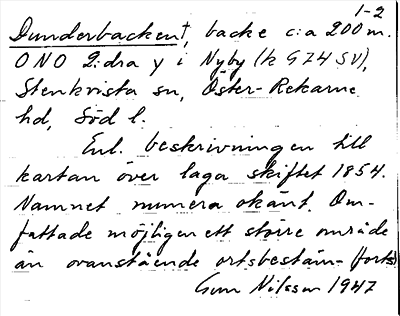 1-2
Dunderbacken†, backe c:a 200 m.
ONO 2:dra y i Nyby (k G74 SV),
Stenkvista sn, Öster-Rekarne
hd, Söd l.
Enl. beskrivningen till
kartan över laga skiftet 1854.
Namnet numera okänt. Om-
fattade möjligen ett större område
än ovanstående ortsbestäm- (forts)
Gun Nilsson 1947